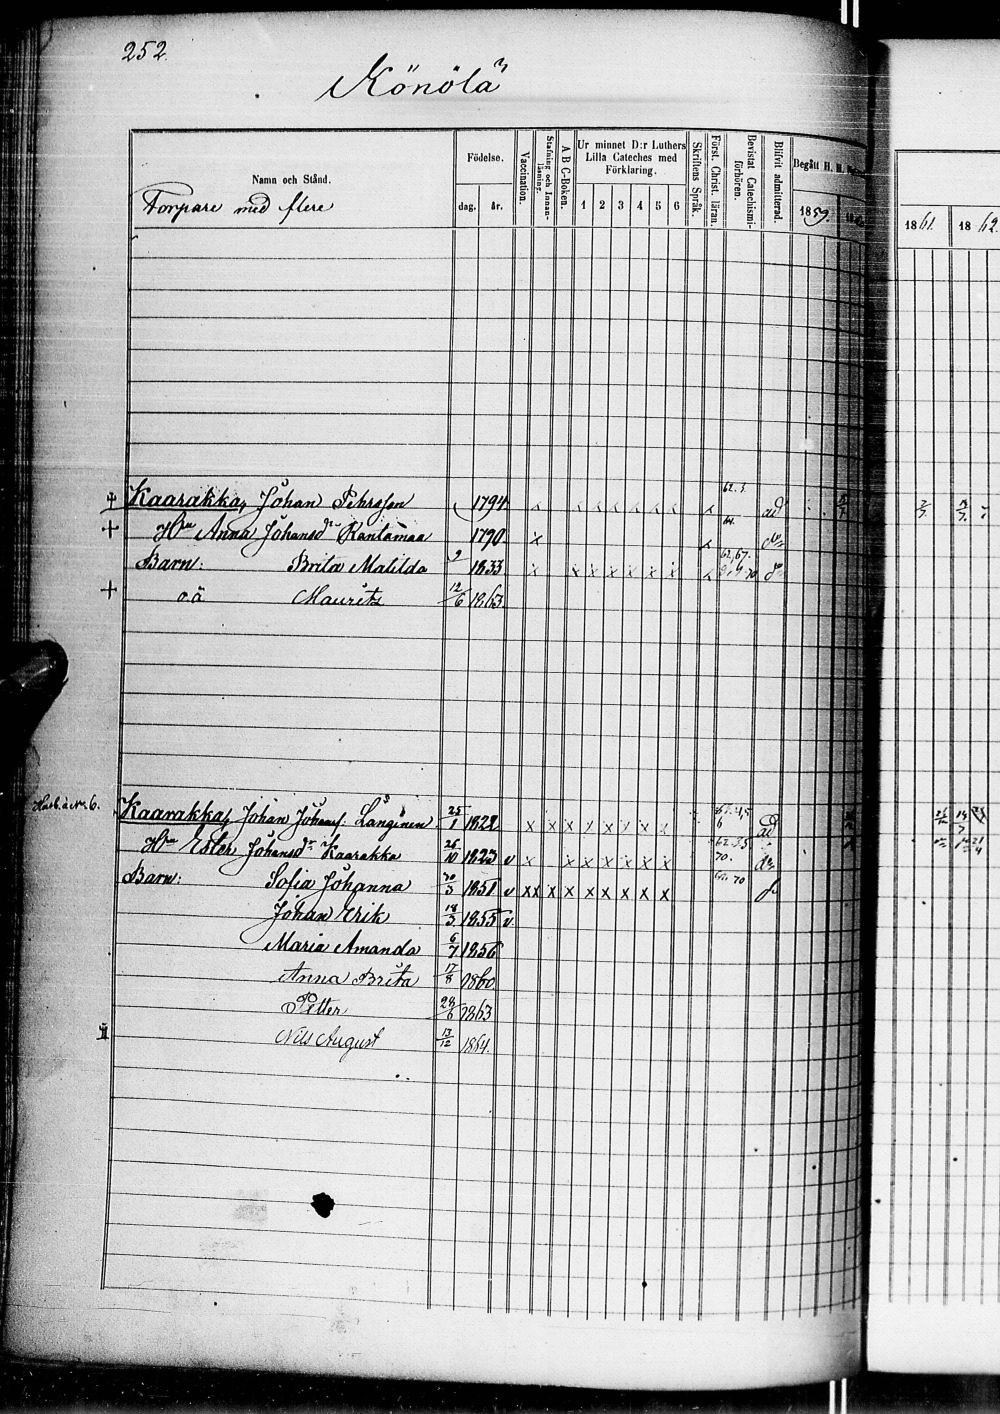 252.
Könölä
Namn och Stånd.
Torpare med flere
Födelse.
dag. år.
Vaccination.
Stafning och Innanläsning.
A B C-Boken.
Ur minnet D:r Luthers Lilla Cateches med Förklaring.
1 2 3 4 5 6
Skriftens Språk.
Först. Christ. läran.
Bevistat Catechismiförhören.
Blifvit admitterad.
Begått H. H.
1859.
1861. 1862.
Kaarakka, Johan Pehrsson 1794 x x x x x x x x 62. ad
Hu Anna Johansdr Kantamaa 1790. x x 64. do
Barn: Brita Matilda 9 1833 x x x x x x x x 62, 67. 70 do
o.ä Mauritz 12/6 1863.
Kaarakka, Johan Johanss. Langinen 25/1 1822 x x x x x x x x 6 ad
Hu Ester Johansdr Kaarakka 26/10 1823 v x x x x x x x x 70. do
Barn: Sofia Johanna 30/3 1851 v x x x x x x x x x 70 do
Johan Erik 18/3 1855 v
Maria Amanda 6/7 1856
Anna Brita 17/8 1860.
Petter 28/6 1863
Nils August 13/12 1864.